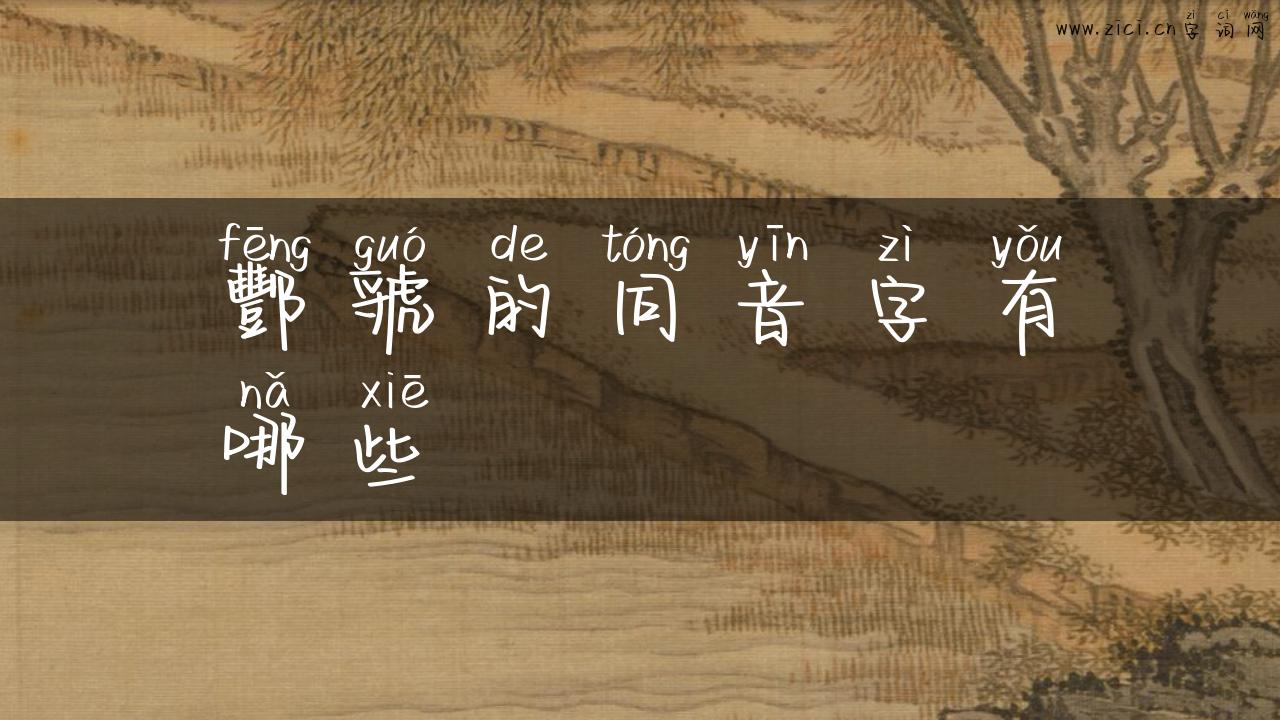 zì cí wǎng
www.zici.cn 字 词 网
fēng guó de tóng yīn zì yǒu
酆 虢 的 同 音 字 有
nǎ xiē
哪 些